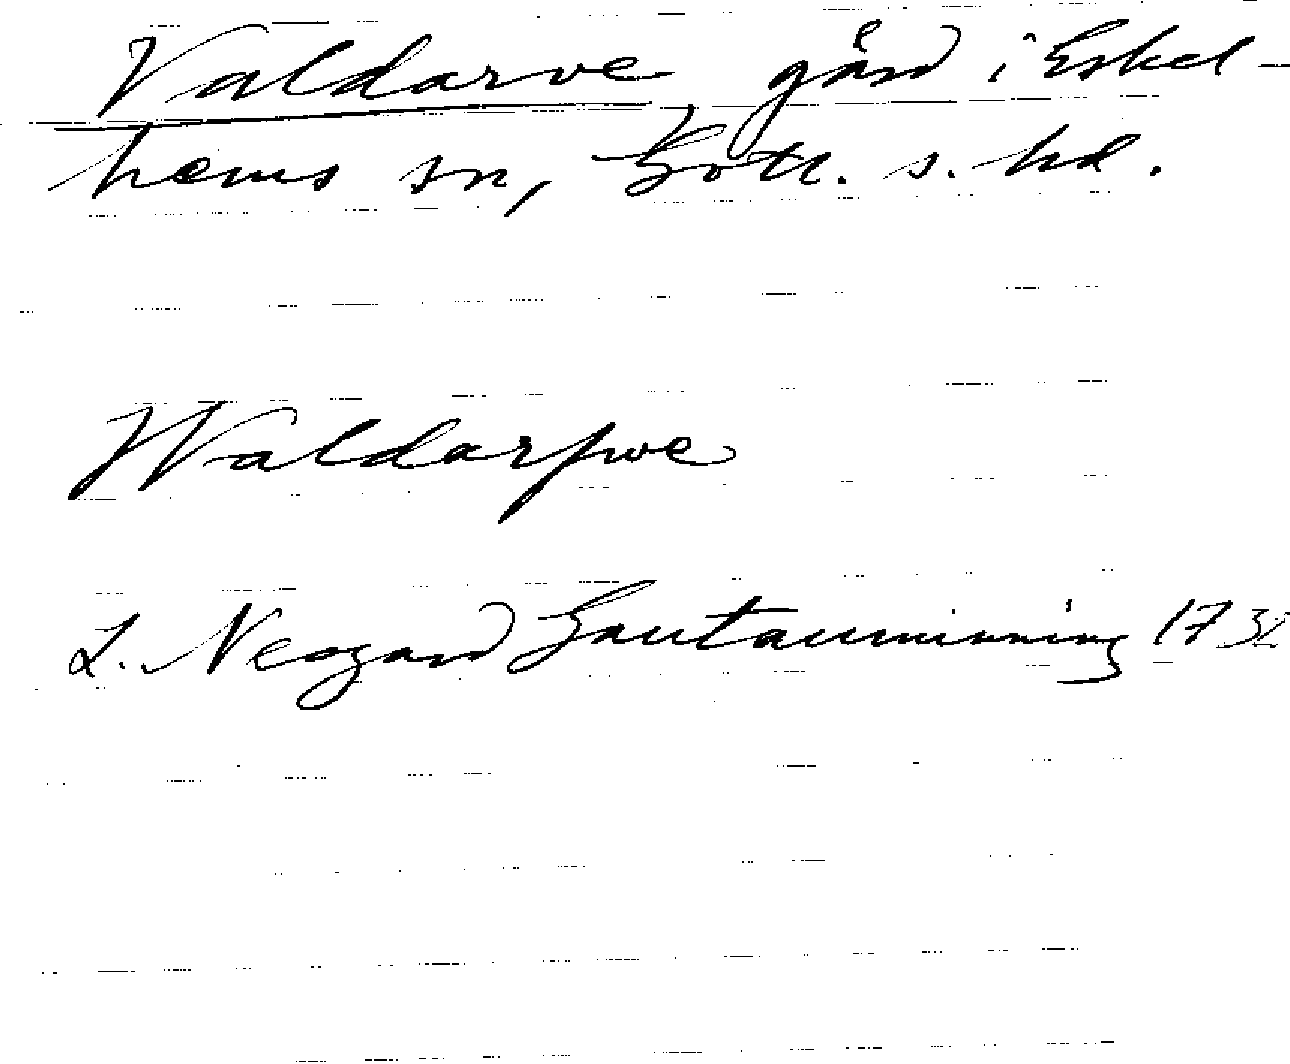 Valdarve gård i Eskel-
hems sn, Gotl. s. hd.
Waldarfwe
L. Neogard Gautauminning 1732